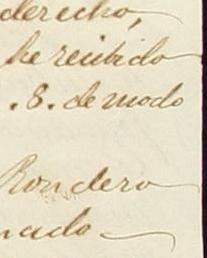 derecho,
he recibido
. S. de modo
Rondero
nado